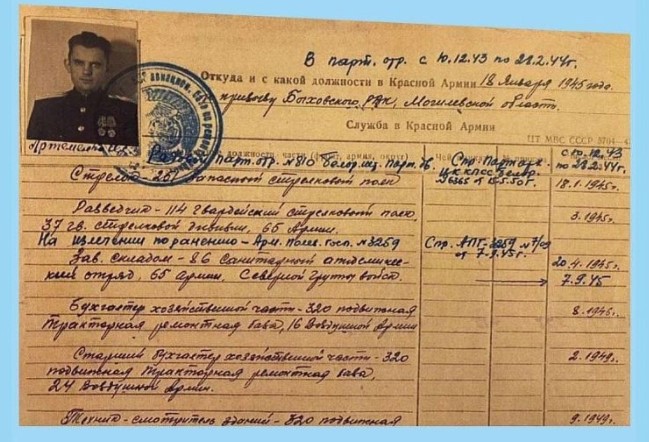 В парт. отр. с 10.12.43 по 28.2.44г.
Откуда и с какой должности в Красной Армии 18 января 1945 года.
призыву Быховского РВК, Могилевской область.
Служба в Красной Армии
ЦТ МВС СССР
с 10.12.43
парт. отр. № 810 Белорус. парт. дв.
Спр. Партарх.
28.2.44г.
ЦК КПСС Белор.
Стрелок - запасной стрелковый полк
от 15.5.50г.
18.1.1945г.
Разведчик - 114 Гвардейский стрелковый полк
3.1945г.
37 гв. стрелковой дивизии, 65 Армии.
На излечении по ранению - Арм. полев. госп. № 3259
Спр. АПГ-3259
от 7.9.45г.
Зав. складом - 86 Санитарный
20.4.1945г.
отряд, 65 Армии, Северной Группы войск.
7.9.45
Бухгалтер хозяйственной части - 320 подвижная
8.1945г.
тракторная ремонтная база, 16 Воздушной Армии
Старший бухгалтер хозяйственной части - 320
2.1949г.
подвижная тракторная ремонтная база,
24 Воздушной Армии.
Техник - смотритель зданий - 320 подвижная
9.1949г.